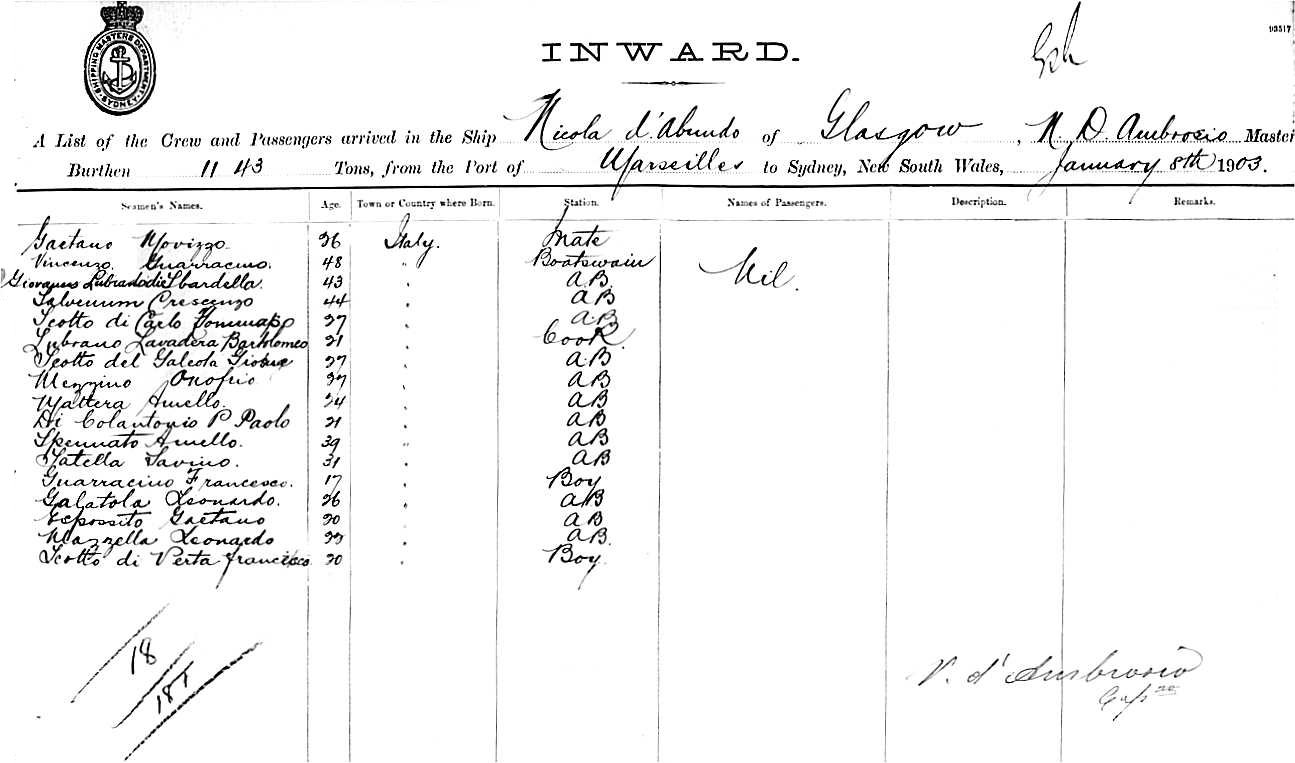 SHIPPING MASTERS DEPARTMENT
SYDNEY
93517
INWARD.
A List of the Crew and Passengers arrived in the Ship Nicola d'Abundo of Glasgow, N. D. Ambrosio Master
Burthen 1143 Tons, from the Port of Marseilles to Sydney, New South Wales, January 8th 1903.
Seamen's Names. Age. Town or Country where Born. Station. Names of Passengers. Description. Remarks.
Gaetano 26 Italy. Mate
Vincenzo Guarracino. 48 " Boatswain Nil.
Giovanni Sbardella. 43 " AB
Crescenzo 44 " AB
Scotto di Carlo Tommaso 27 " AB
Lubrano Lavadera Bartolomeo 21 " Cook
Scotto del Galeola 27 " AB
Mezzino Onofrio " AB
Mattera Aniello. 24 " AB
Di Colantonio P Paolo 21 " AB
Spennato Aniello. 39 " AB
Tatella Savino. 31 " AB
Guarracino Francesco. 17 " Boy
Galatola Leonardo. 26 " AB
Esposito Gaetano 20 " AB
Mazzella Leonardo 22 " AB.
Scotto di Perta Francesco 20 " Boy.
18
18T
V. d'Ambrosio